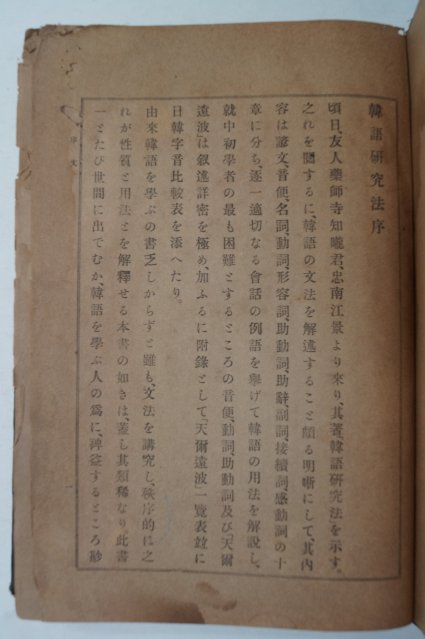 韓語硏究法序
頃日、友人藥師寺知曨君、忠南江景より來り、其著「韓語硏究法」を示す。
之れを閲するに、韓語の文法を解述すること頗る明晰にして、其內
容は諺文、音便、名詞、動詞、形容詞、助動詞、助辭副詞、接續詞感動詞の十
章に分ち、逐一適切なる會話の例語を擧げて韓語の用法を解說し、
就中初學者の最も困難とするところの音便、動詞、助動詞及び「天爾
遠波」は叙述詳密を極め、加ふるに附錄として「天爾遠波」一覽表竝に
日韓字音比較表を添へたり。
由來韓語を學ぶの書乏しからずと雖も、文法を講究し、秩序的に之
れが性質と用法とを解釋せる本書の如きは、蓋し其類稀なり此書
一とたび世間に出でむか、韓語を學ぶ人の爲に、裨益するところ尠
序文
一